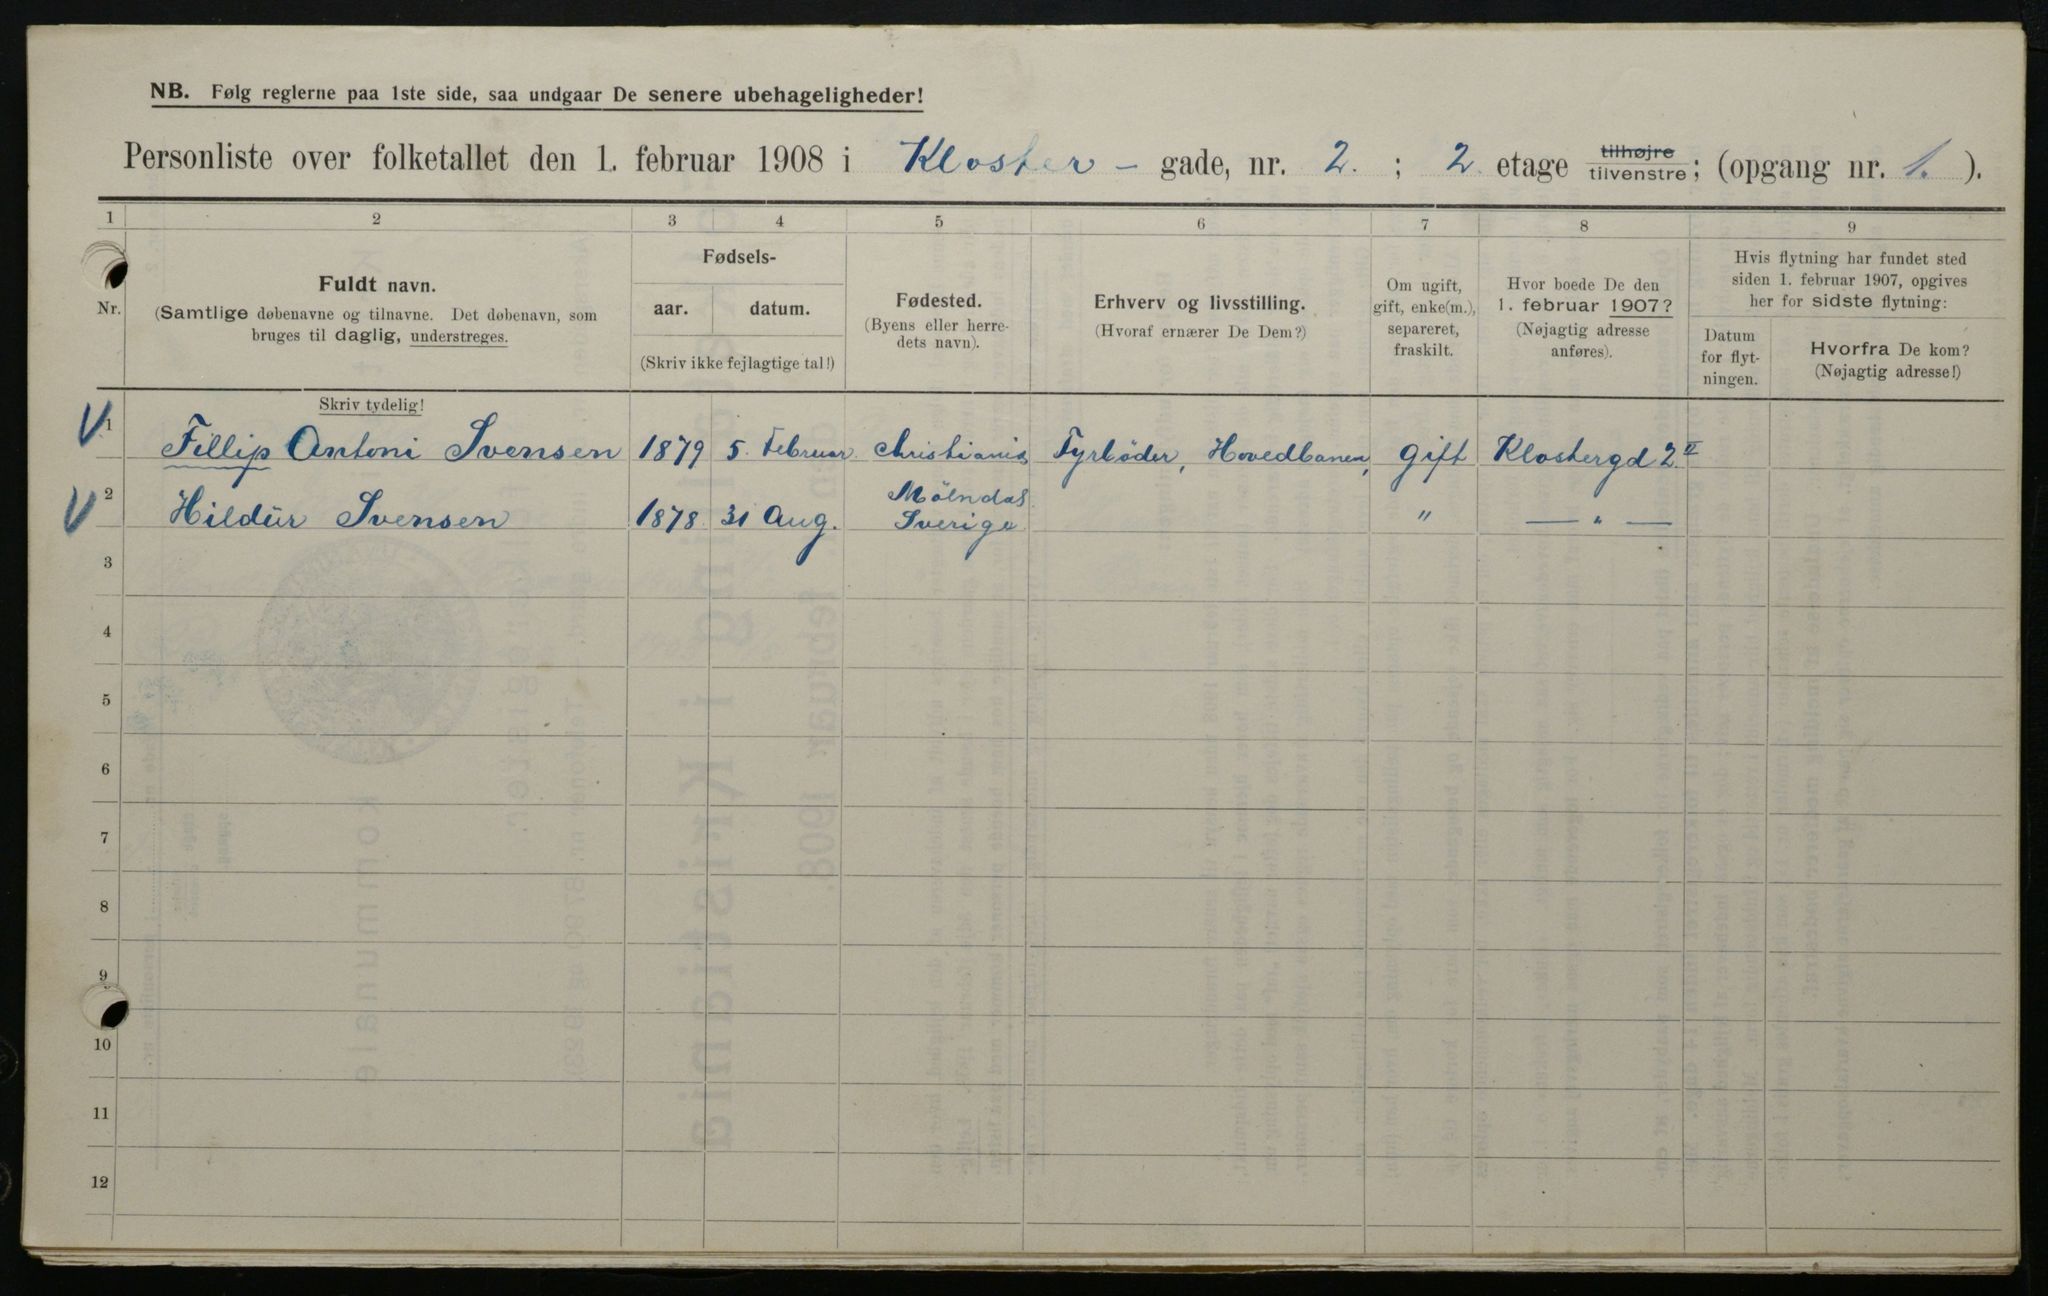 NB. Følg reglerne paa 1ste side, saa undgaar De senere ubehageligheder!
Personliste over folketallet den 1. februar 1908 i Kloster - gade, nr. 2. ; 2 etage tilhøjre tilvenstre; (opgang nr. 1. ).
1 2 3 4 5 6 7 8 9
Nr.
Fuldt navn.
(Samtlige døbenavne og tilnavne. Det døbenavn, som
bruges til daglig, understreges.
Skriv tydelig!
Fødsels-
aar. datum.
(Skriv ikke fejlagtige tal!)
Fødested.
(Byens eller herre-
dets navn).
Erhverv og livsstilling.
(Hvoraf ernærer De Dem?)
Om ugift,
gift, enke(m.),
separeret,
fraskilt.
Hvor boede De den
1. februar 1907?
(Nøjagtig adresse
anføres).
Hvis flytning har fundet sted
siden 1. februar 1907, opgives
her for sidste flytning:
Datum
for flyt-
ningen.
Hvorfra De kom?
(Nøjagtig adresse!)
V 1 Fillip Antoni Svensen 1879 5. Februar. Christiania Fyrbøder, Hovedbanen, gift Klostergd 2 II
V 2 Hildür Svensen 1878. 31 Aug. Mölndal Sverige " — " —
3
4
5
6
7
8
9
10
11
12